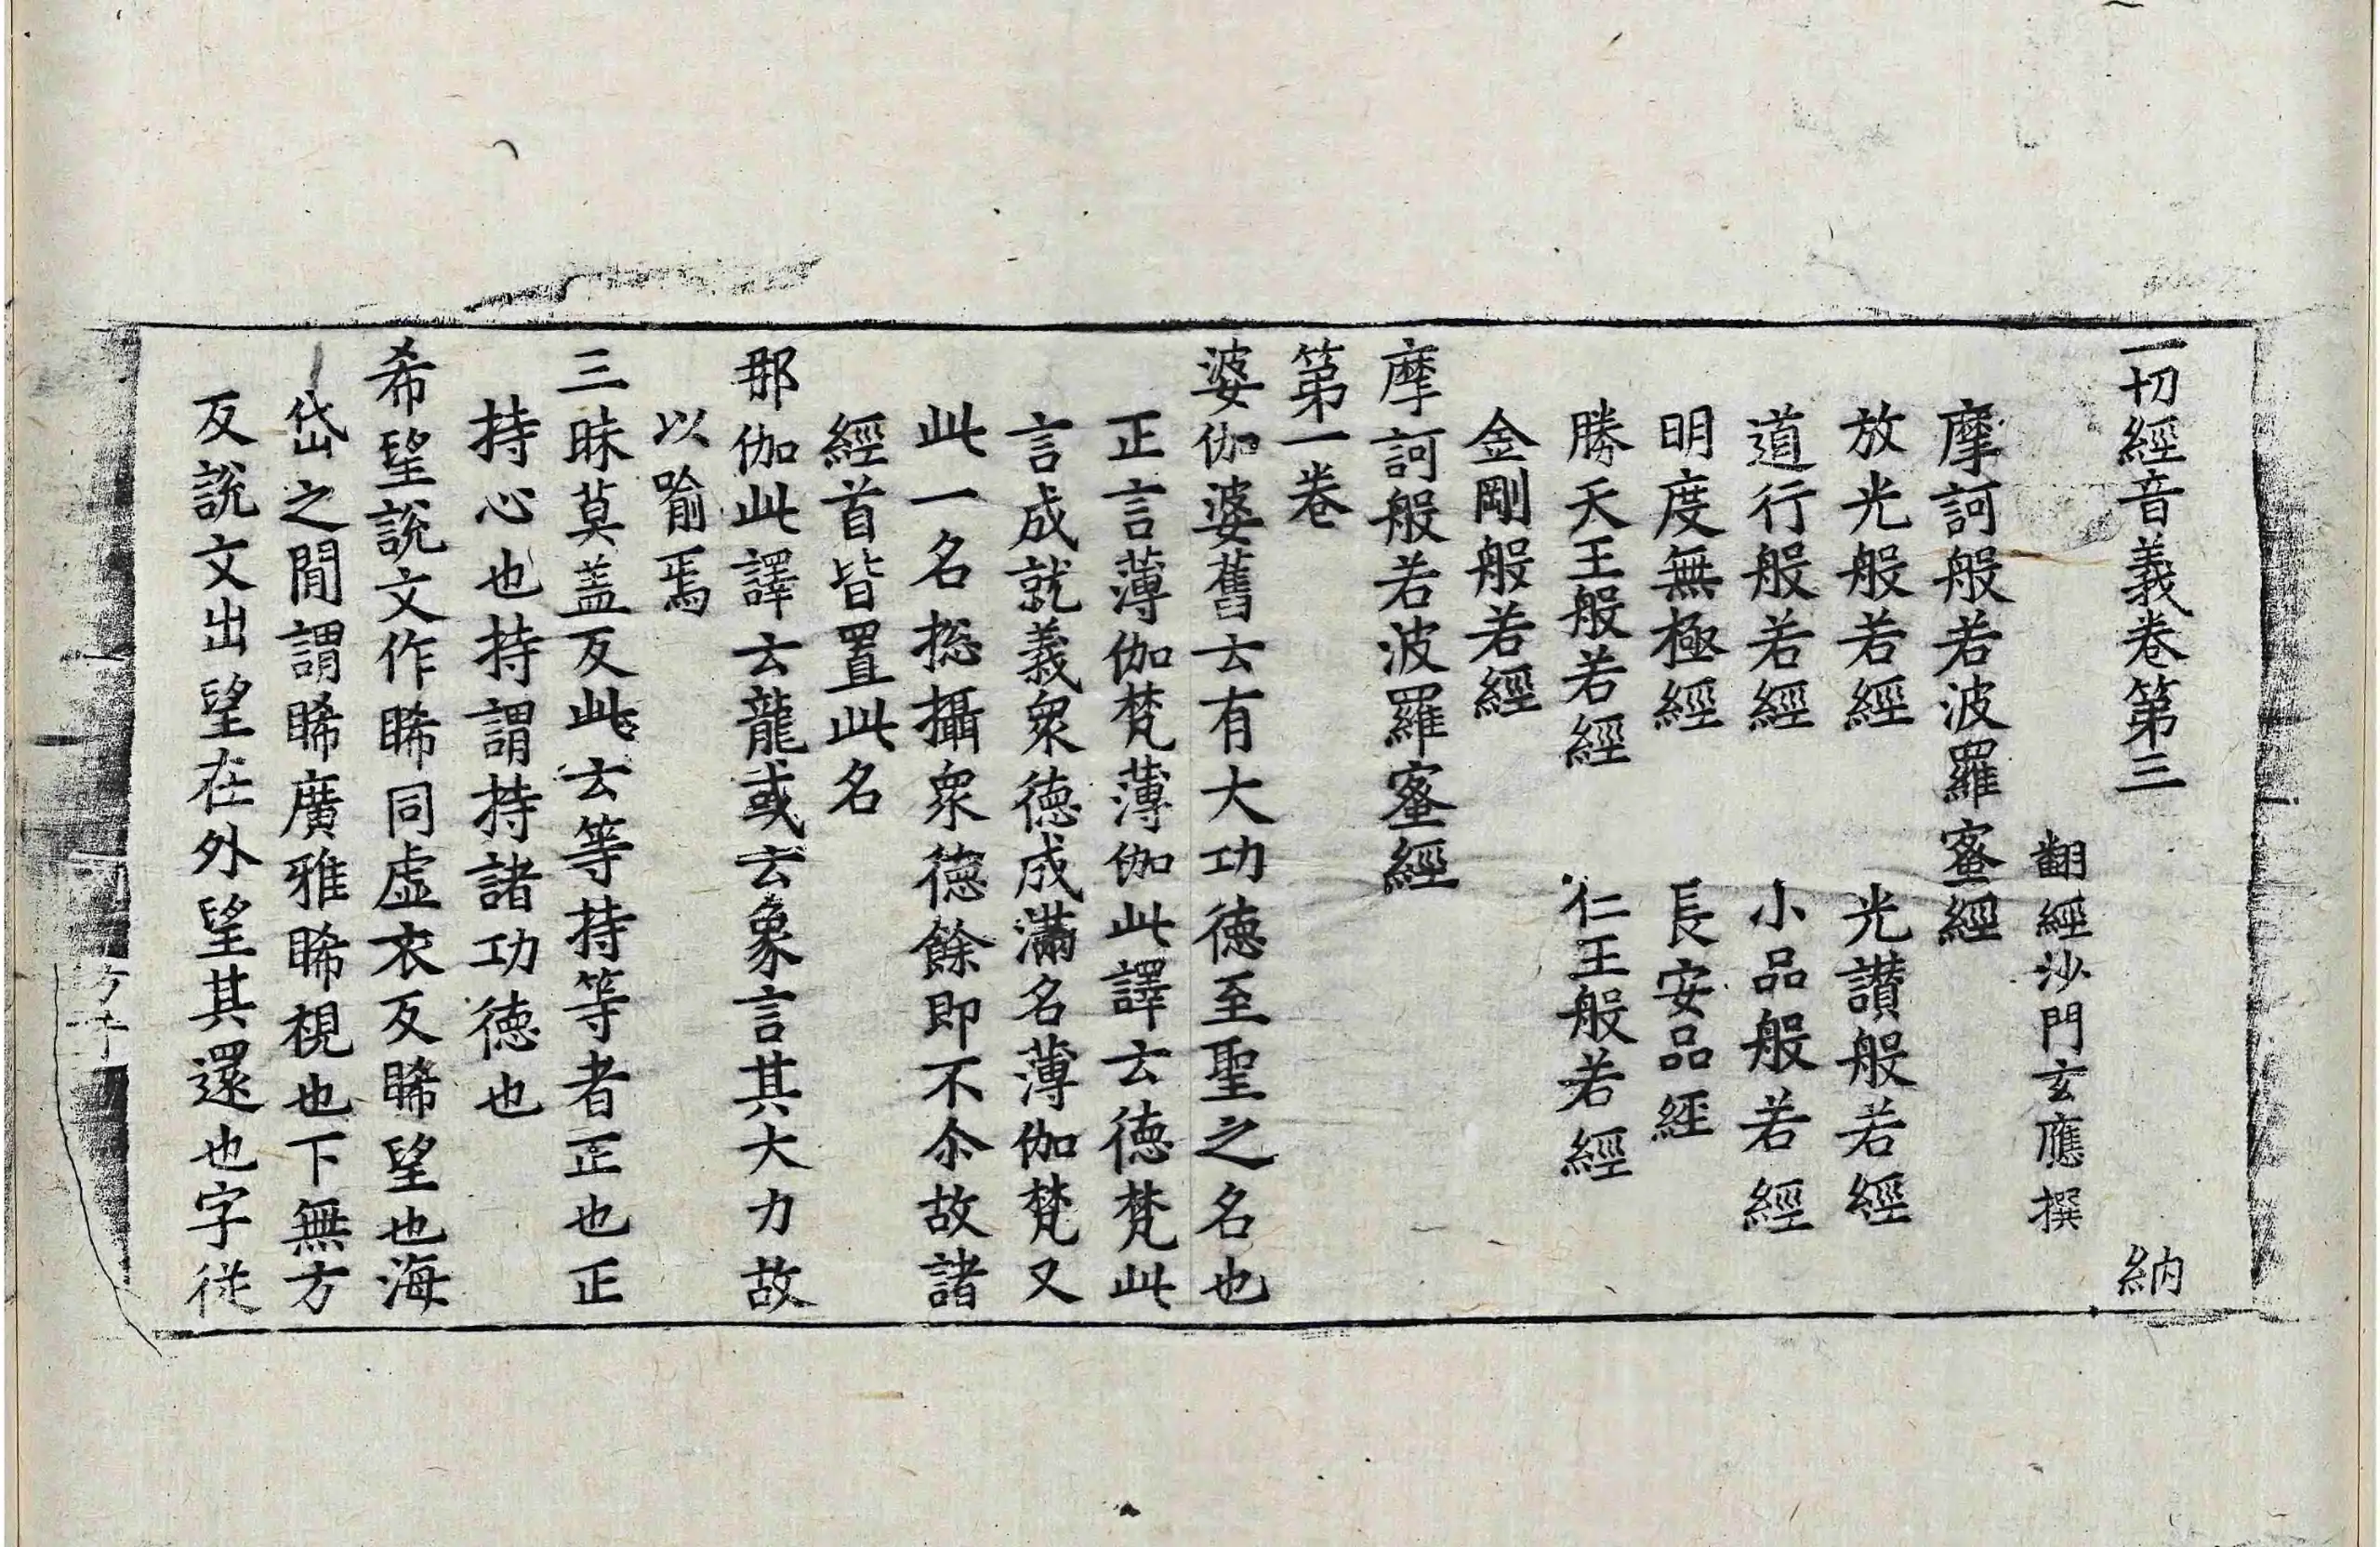 一切經音義卷第三　納
翻經沙門玄應撰
摩訶般若波羅蜜經
放光般若經　光讚般若經
道行般若經　小品般若經
明度無極經　長安品經
勝天王般若經　仁王般若經
金剛般若經
摩訶般若波羅蜜經
第一卷
婆伽婆舊云有大功德至聖之名也
正言薄伽梵薄伽此譯云德梵此
言成就義衆德成滿名薄伽梵又
此一名揔攝衆德餘即不尒故諸
經首皆置此名
那伽此譯云龍或云象言其大力故
以喻焉
三昧莫盖反此云等持等者正也正
持心也持謂持諸功德也
希望說文作睎同虛衣反睎望也海
岱之間謂睎廣雅睎視也下無方
反說文出望在外望其還也字從